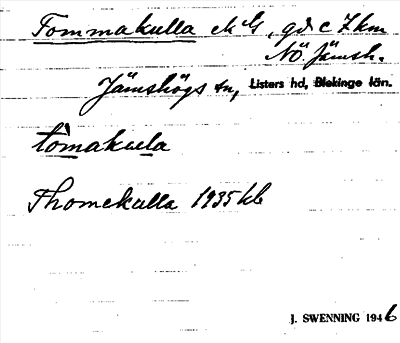 Tommakulla ek 1/4, gd c 7 km
NÖ. Jämsh.
Jämshögs sn, Listers hd, Blekinge län.
tòmakula
Thomekulla 1935 kb
J. SWENNING 1946